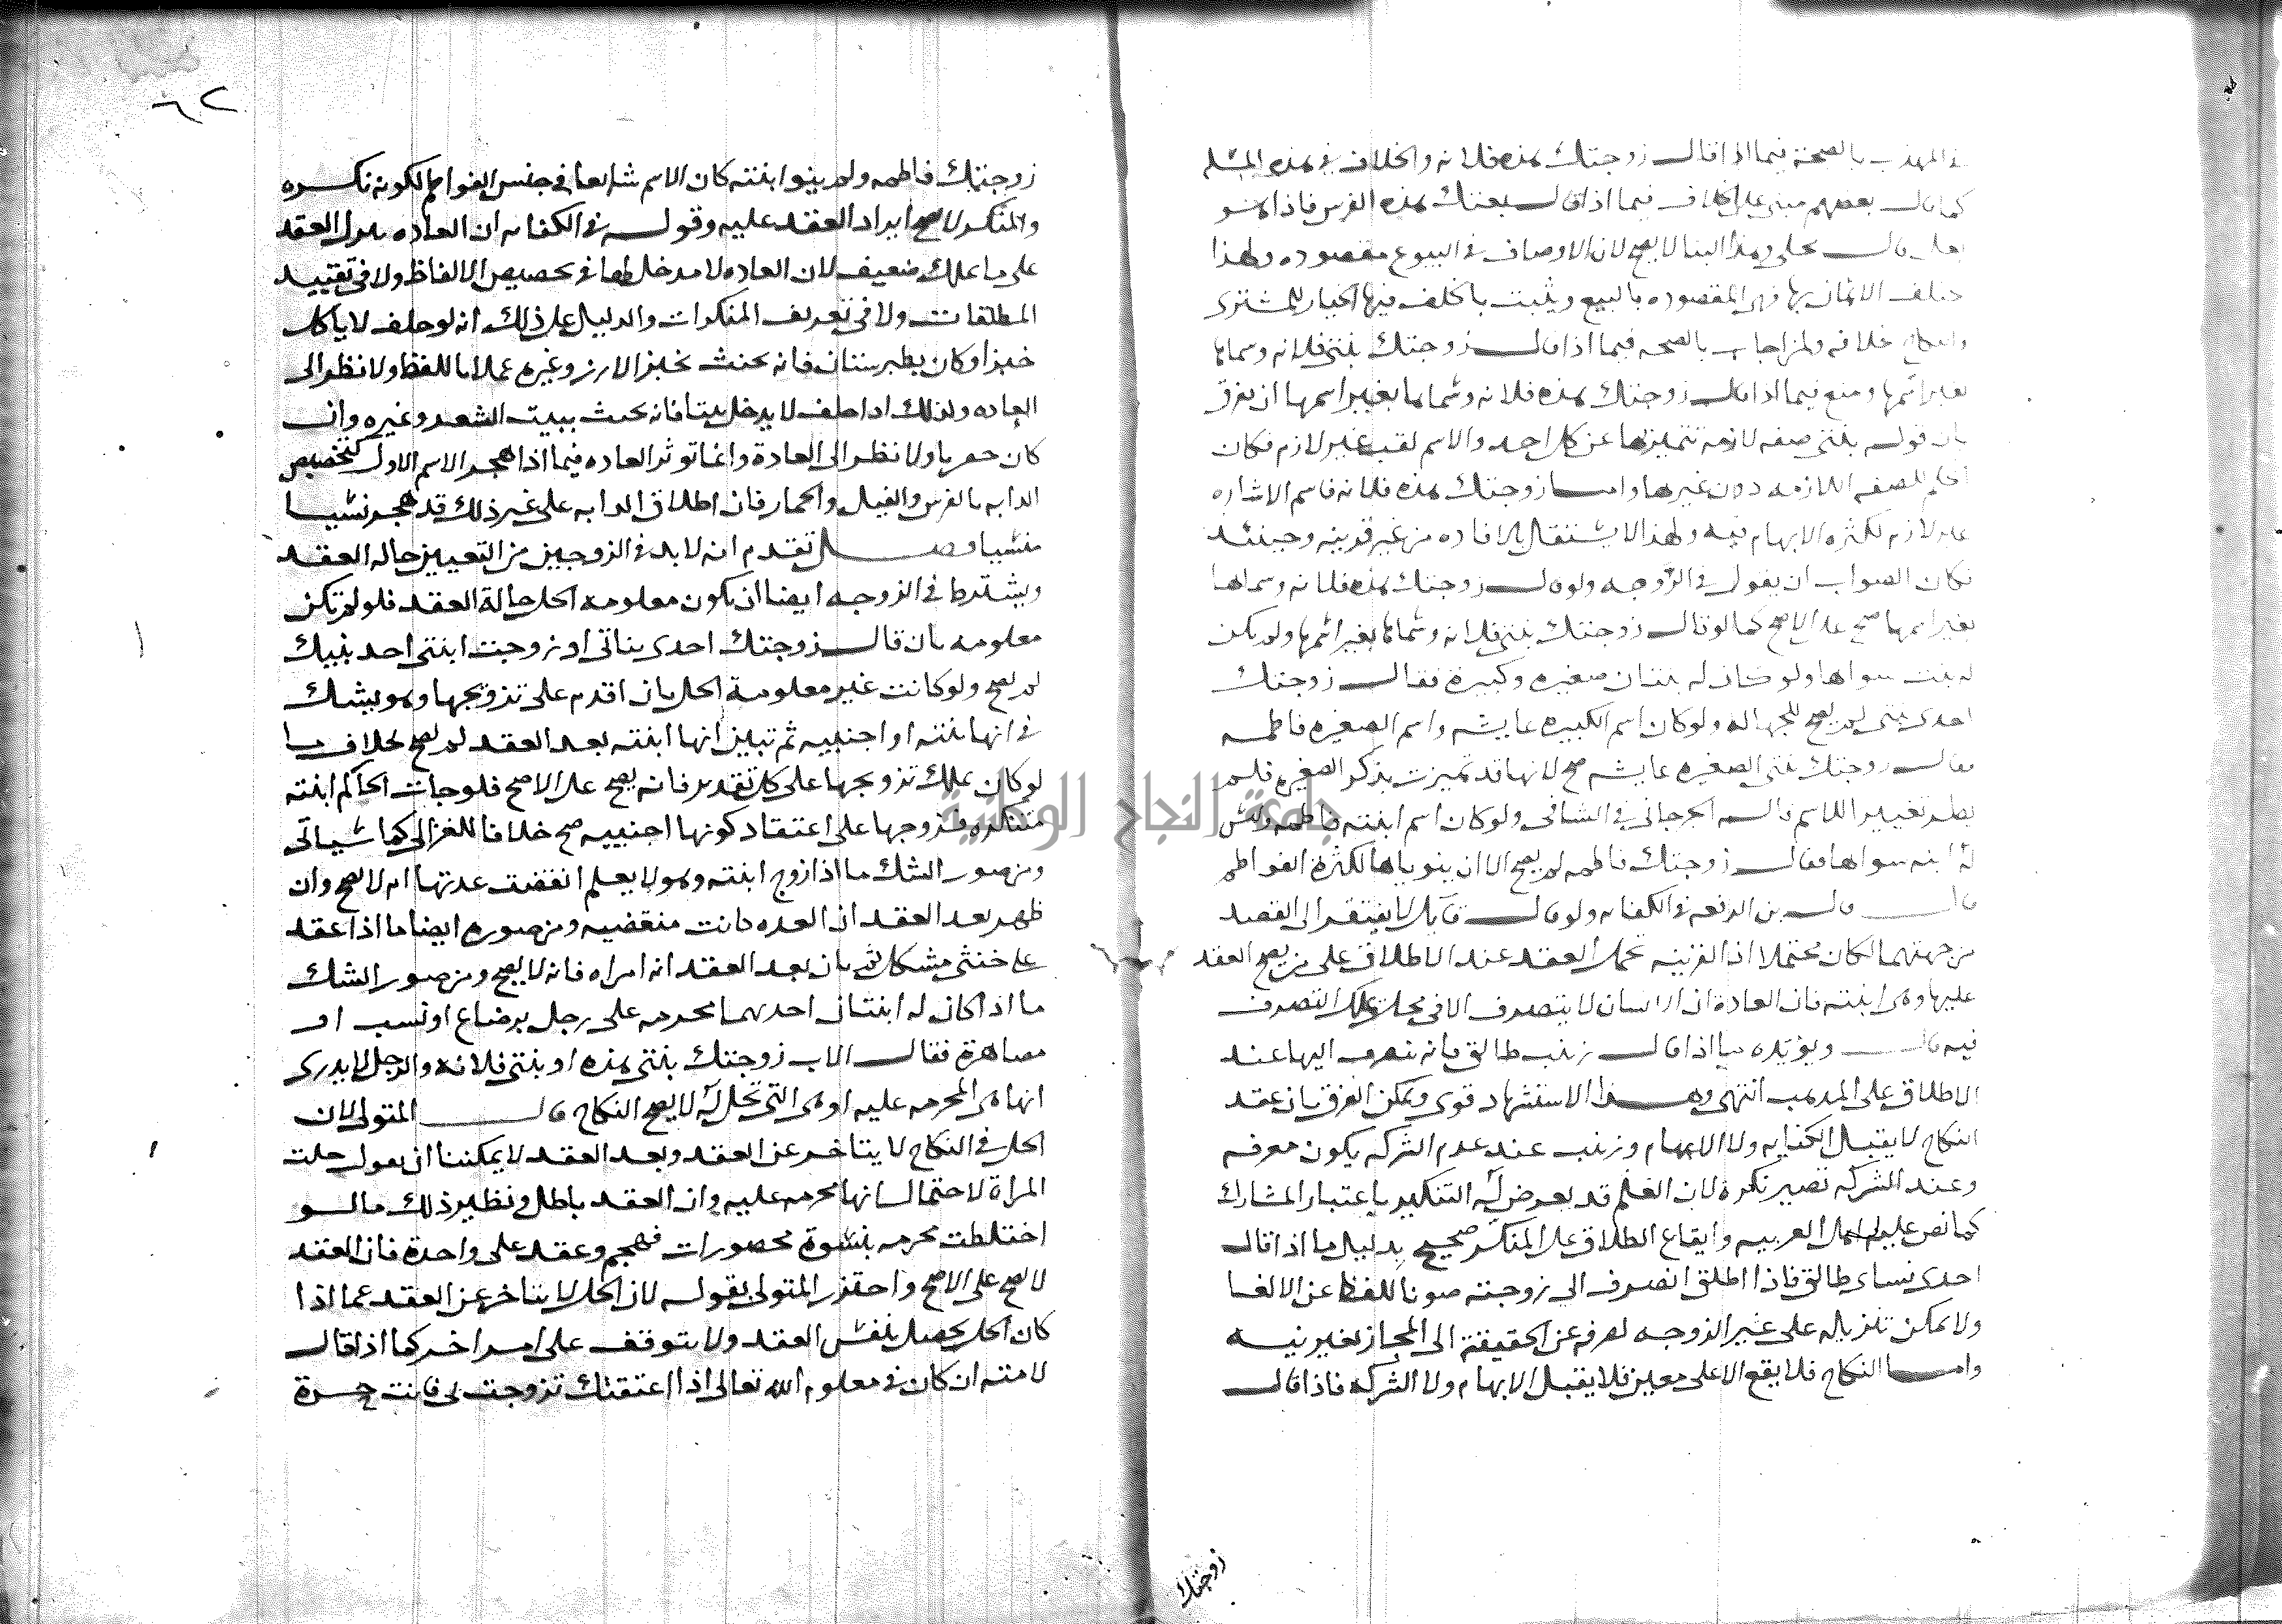 في المهذب بالصحة فيما اذا قال زوجتك هذه فلانه والخلاف في هذه المسله
كما قال بعضهم مبني على الخلاف فيما اذا قال بعتك هذه الفرس فاذا هو
بغل قال مجلي وهذا البنا لا يصح لان الاوصاف في البيوع مقصوده ولهذا
تختلف الاثمان بها فهي المقصوده بالبيع ويثبت بالخلف فيها الخيار للمشتري
والنكاح خلافه ولمن اجاب بالصحه فيما اذا قال زوجتك بنتي فلانه وسماها
بغير اسمها ومنع فيما اذا قال زوجتك هذه فلانه وسماها بغير اسمها ان يفرق
بان قوله بنتي صفه لازمه تتميز بها عن كل احد والاسم لقب غير لازم فكان
الحكم للصفه اللازمه دون غيرها وامـا زوجتك هذه فلانه فاسم الاشاره
غير لازم لكثره الابهام فيه ولهذا لا يستقل بالافاده من غير قرينه وحينئذ
فكان الصواب ان يقول في الزوجه ولو قال زوجتك هذه فلانه وسماها
بغير اسمها صح على الاصح كما لو قال زوجتك بنتي فلانه وسماها بغير اسمها ولم يكن
له بنت سواها ولو كان له بنتان صغيره وكبيرة فقال زوجتك
احدى بنتي لم يصح للجهاله ولو كان اسم الكبيره عايشه واسم الصغيره فاطمه
فقال زوجتك بنتي الصغيره عايشه صح لانها قد تميزت بذكر الصغيره فلم
يضر تغيير الاسم قاله الجرجاني في الشافي ولو كان اسم ابنته فاطمه وليس
له ابنه سواها فقال زوجتك فاطمه لم يصح الا ان ينوياها لكثرة الفواطم
قال قال بن الرفعه في الكفايه ولو قال قايل لا يفتقر الى القصد
من جهتهما لكان محتملا اذ القرينه تحمل العقد عند الاطلاق على من يصح العقد
عليها وهي ابنته فان العادة ان الانسان لا يتصرف الا في محل يملك التصرف
فيه قال ويؤيده ما اذا قال زينب طالق فانه ينصرف اليها عند
الاطلاق على المذهب انتهى وهـذا الاستشهاد قوي ويمكن الفرق بان عقد
النكاح لا يقبل الكنايه ولا الابهام وزينب عند عدم الشركه يكون معرفه
وعند الشركه تصير نكرة لان العلم قد يعرض له التنكير باعتبار المشارك
كما نص عليه اهل العربيه وايقاع الطلاق على المنكر صحيح بدليل ما اذا قال
احدى نساى طالق فاذا اطلق انصرف الى زوجته صونا للفظ عن الالغا
ولا يمكن تنزيله على غير الزوجه لصرفه عن الحقيقة الى المجاز بغير نيه
وامـا النكاح فلا يقع الا على معين فلا يقبل الابهام ولا الشركه فاذا قال
زوجتك
٦٢
زوجتك فاطمه ولم ينو ابنته كان الاسم شايعا في جنس الفواطم لكونه نكـره
والمنكر لا يصح ايراد العقد عليه وقوله في الكفايه ان العاده ينزل العقد
على ما يملك ضعيف لان العاده لا مدخل لها في تخصيص الالفاظ ولا في تقييد
المطلقات ولا في تعريف المنكرات والدليل على ذلك انه لو حلف لا ياكل
خبزا وكان بطبرستان فانه يحنث بخبز الارز وغيره عملا باللفظ ولا نظر الى
العاده وكذلك اذا حلف لا يدخل بيتا فانه يحنث ببيت الشعر وغيره وان
كان حضريا ولا نظر الى العادة وانما توثر العاده فيما اذا هجر الاسم الاول كتخصيص
الدابه بالفرس والفيل والحمار فان اطلاق الدابه على غير ذلك قد هجر نسيا
منسيا فصـل تقدم انه لا بد في الزوجين من التعيين حاله العقد
ويشترط في الزوجه ايضا ان يكون معلومه الحل حالة العقد فلو لم تكن
معلومه بان قال زوجتك احدى بناتي او زوجت ابنتي احد بنيك
لم يصح ولو كانت غير معلومة الحل بان اقدم على تزويجها وهو يشك
في انها بنته او اجنبيه ثم تبين انها ابنته بعد العقد لم يصح بخلاف ما
لو كان يملك تزويجها على كل تقدير فانه يصح على الاصح فلو جات الحاكم ابنته
متنكره فزوجها على اعتقاد كونها اجنبيه صح خلافا للغزالي كما سياتي
ومن صور الشك ما اذا زوج ابنته وهو لا يعلم انقضت عدتها ام لا يصح وان
ظهر بعد العقد ان العده كانت منقضيه ومن صوره ايضا ما اذا عقد
على خنثى مشكل ثم بان بعد العقد انه امراه فانه لا يصح ومن صور الشك
ما اذا كان له ابنتان احديهما محرمه على رجل برضاع او نسب او
مصاهرة فقال الاب زوجتك بنتي هذه او بنتي فلانه والرجل لا يدري
انها هي المحرمه عليه او هي التي تحل له لا يصح النكاح قال المتولي لان
الحل في النكاح لا يتاخر عن العقد وبعد العقد لا يمكننا ان نقول حلت
المراة لاحتمال انها محرمه عليه وان العقد باطل ونظير ذلك ما لـو
اختلطت محرمه بنسوة محصورات فهجم وعقد على واحدة فان العقد
لا يصح على الاصح واحترز المتولي بقوله لان الحل لا يتاخر عن العقد عما اذا
كان الحل يحصل بنفس العقد ولا يتوقف على امر اخر كما اذا قال
لامته ان كان في معلوم الله تعالى اذا اعتقتك تزوجت بي فانت حـرة
جامعة النجاح الوطنية